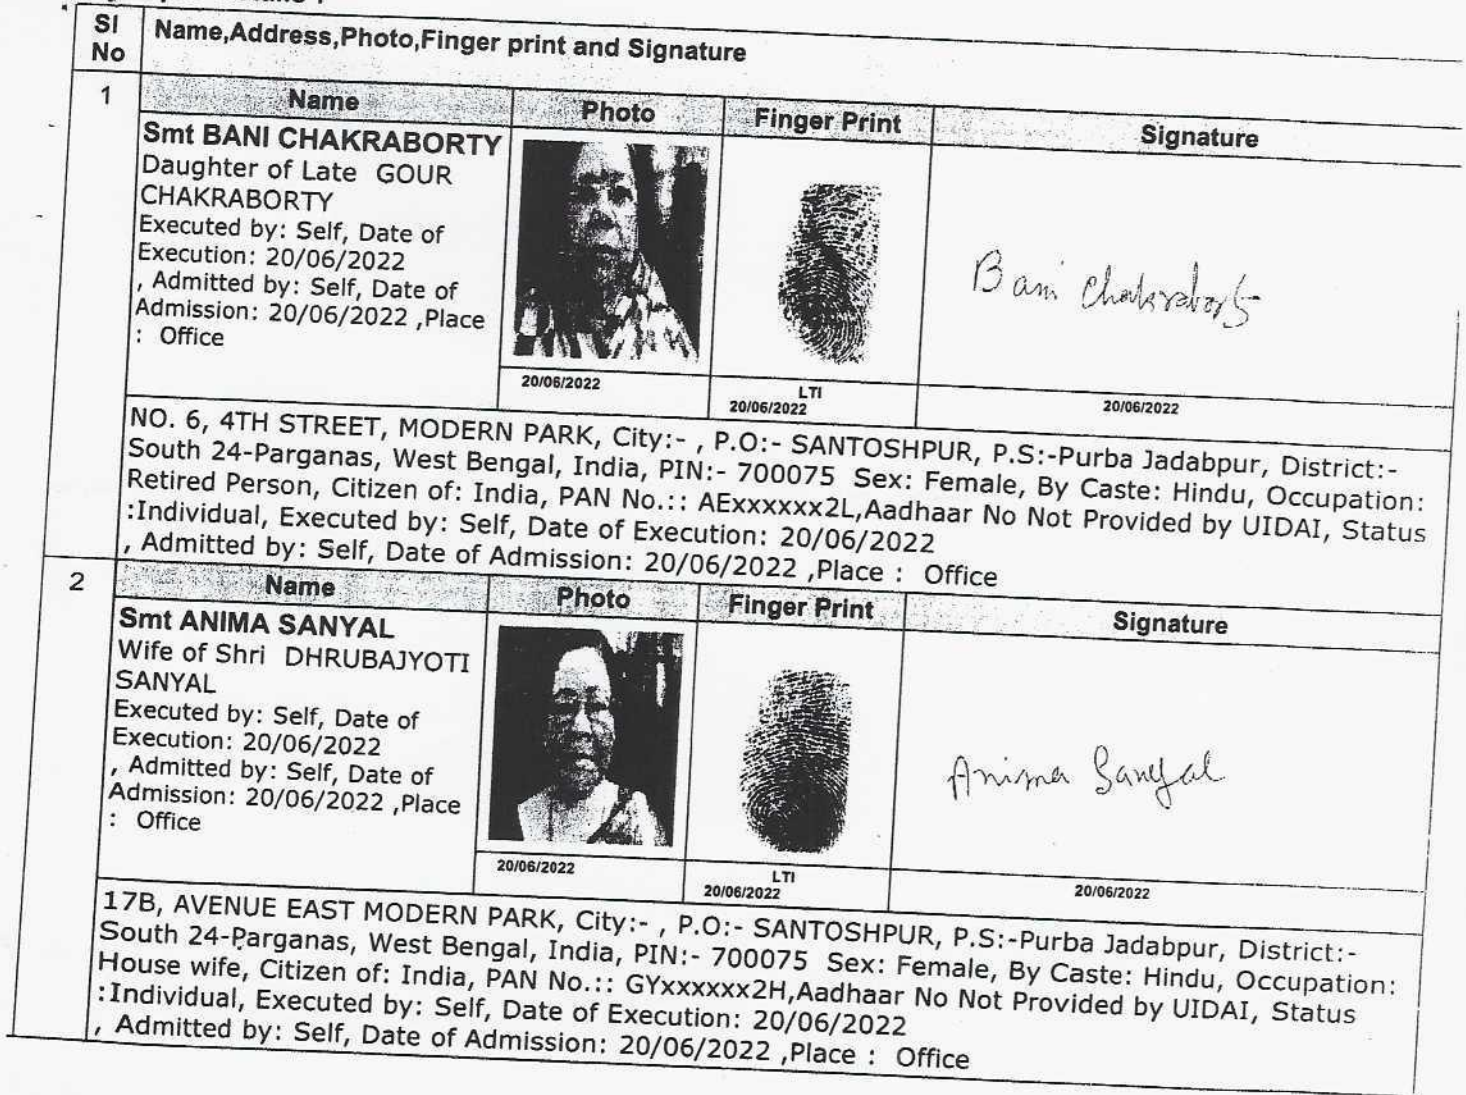 Sl No
Name,Address,Photo,Finger print and Signature
1
Name
Photo
Finger Print
Signature
Smt BANI CHAKRABORTY
Daughter of Late GOUR
CHAKRABORTY
Executed by: Self, Date of
Execution: 20/06/2022
, Admitted by: Self, Date of
Admission: 20/06/2022 ,Place
: Office
Bani Chakraborty
20/06/2022
LTI
20/06/2022
20/06/2022
NO. 6, 4TH STREET, MODERN PARK, City:- , P.O:- SANTOSHPUR, P.S:-Purba Jadabpur, District:-
South 24-Parganas, West Bengal, India, PIN:- 700075 Sex: Female, By Caste: Hindu, Occupation:
Retired Person, Citizen of: India, PAN No.:: AExxxxxx2L,Aadhaar No Not Provided by UIDAI, Status
:Individual, Executed by: Self, Date of Execution: 20/06/2022
, Admitted by: Self, Date of Admission: 20/06/2022 ,Place : Office
2
Name
Photo
Finger Print
Signature
Smt ANIMA SANYAL
Wife of Shri DHRUBAJYOTI
SANYAL
Executed by: Self, Date of
Execution: 20/06/2022
, Admitted by: Self, Date of
Admission: 20/06/2022 ,Place
: Office
Anima Sanyal
20/06/2022
LTI
20/06/2022
20/06/2022
17B, AVENUE EAST MODERN PARK, City:- , P.O:- SANTOSHPUR, P.S:-Purba Jadabpur, District:-
South 24-Parganas, West Bengal, India, PIN:- 700075 Sex: Female, By Caste: Hindu, Occupation:
House wife, Citizen of: India, PAN No.:: GYxxxxxx2H,Aadhaar No Not Provided by UIDAI, Status
:Individual, Executed by: Self, Date of Execution: 20/06/2022
, Admitted by: Self, Date of Admission: 20/06/2022 ,Place : Office